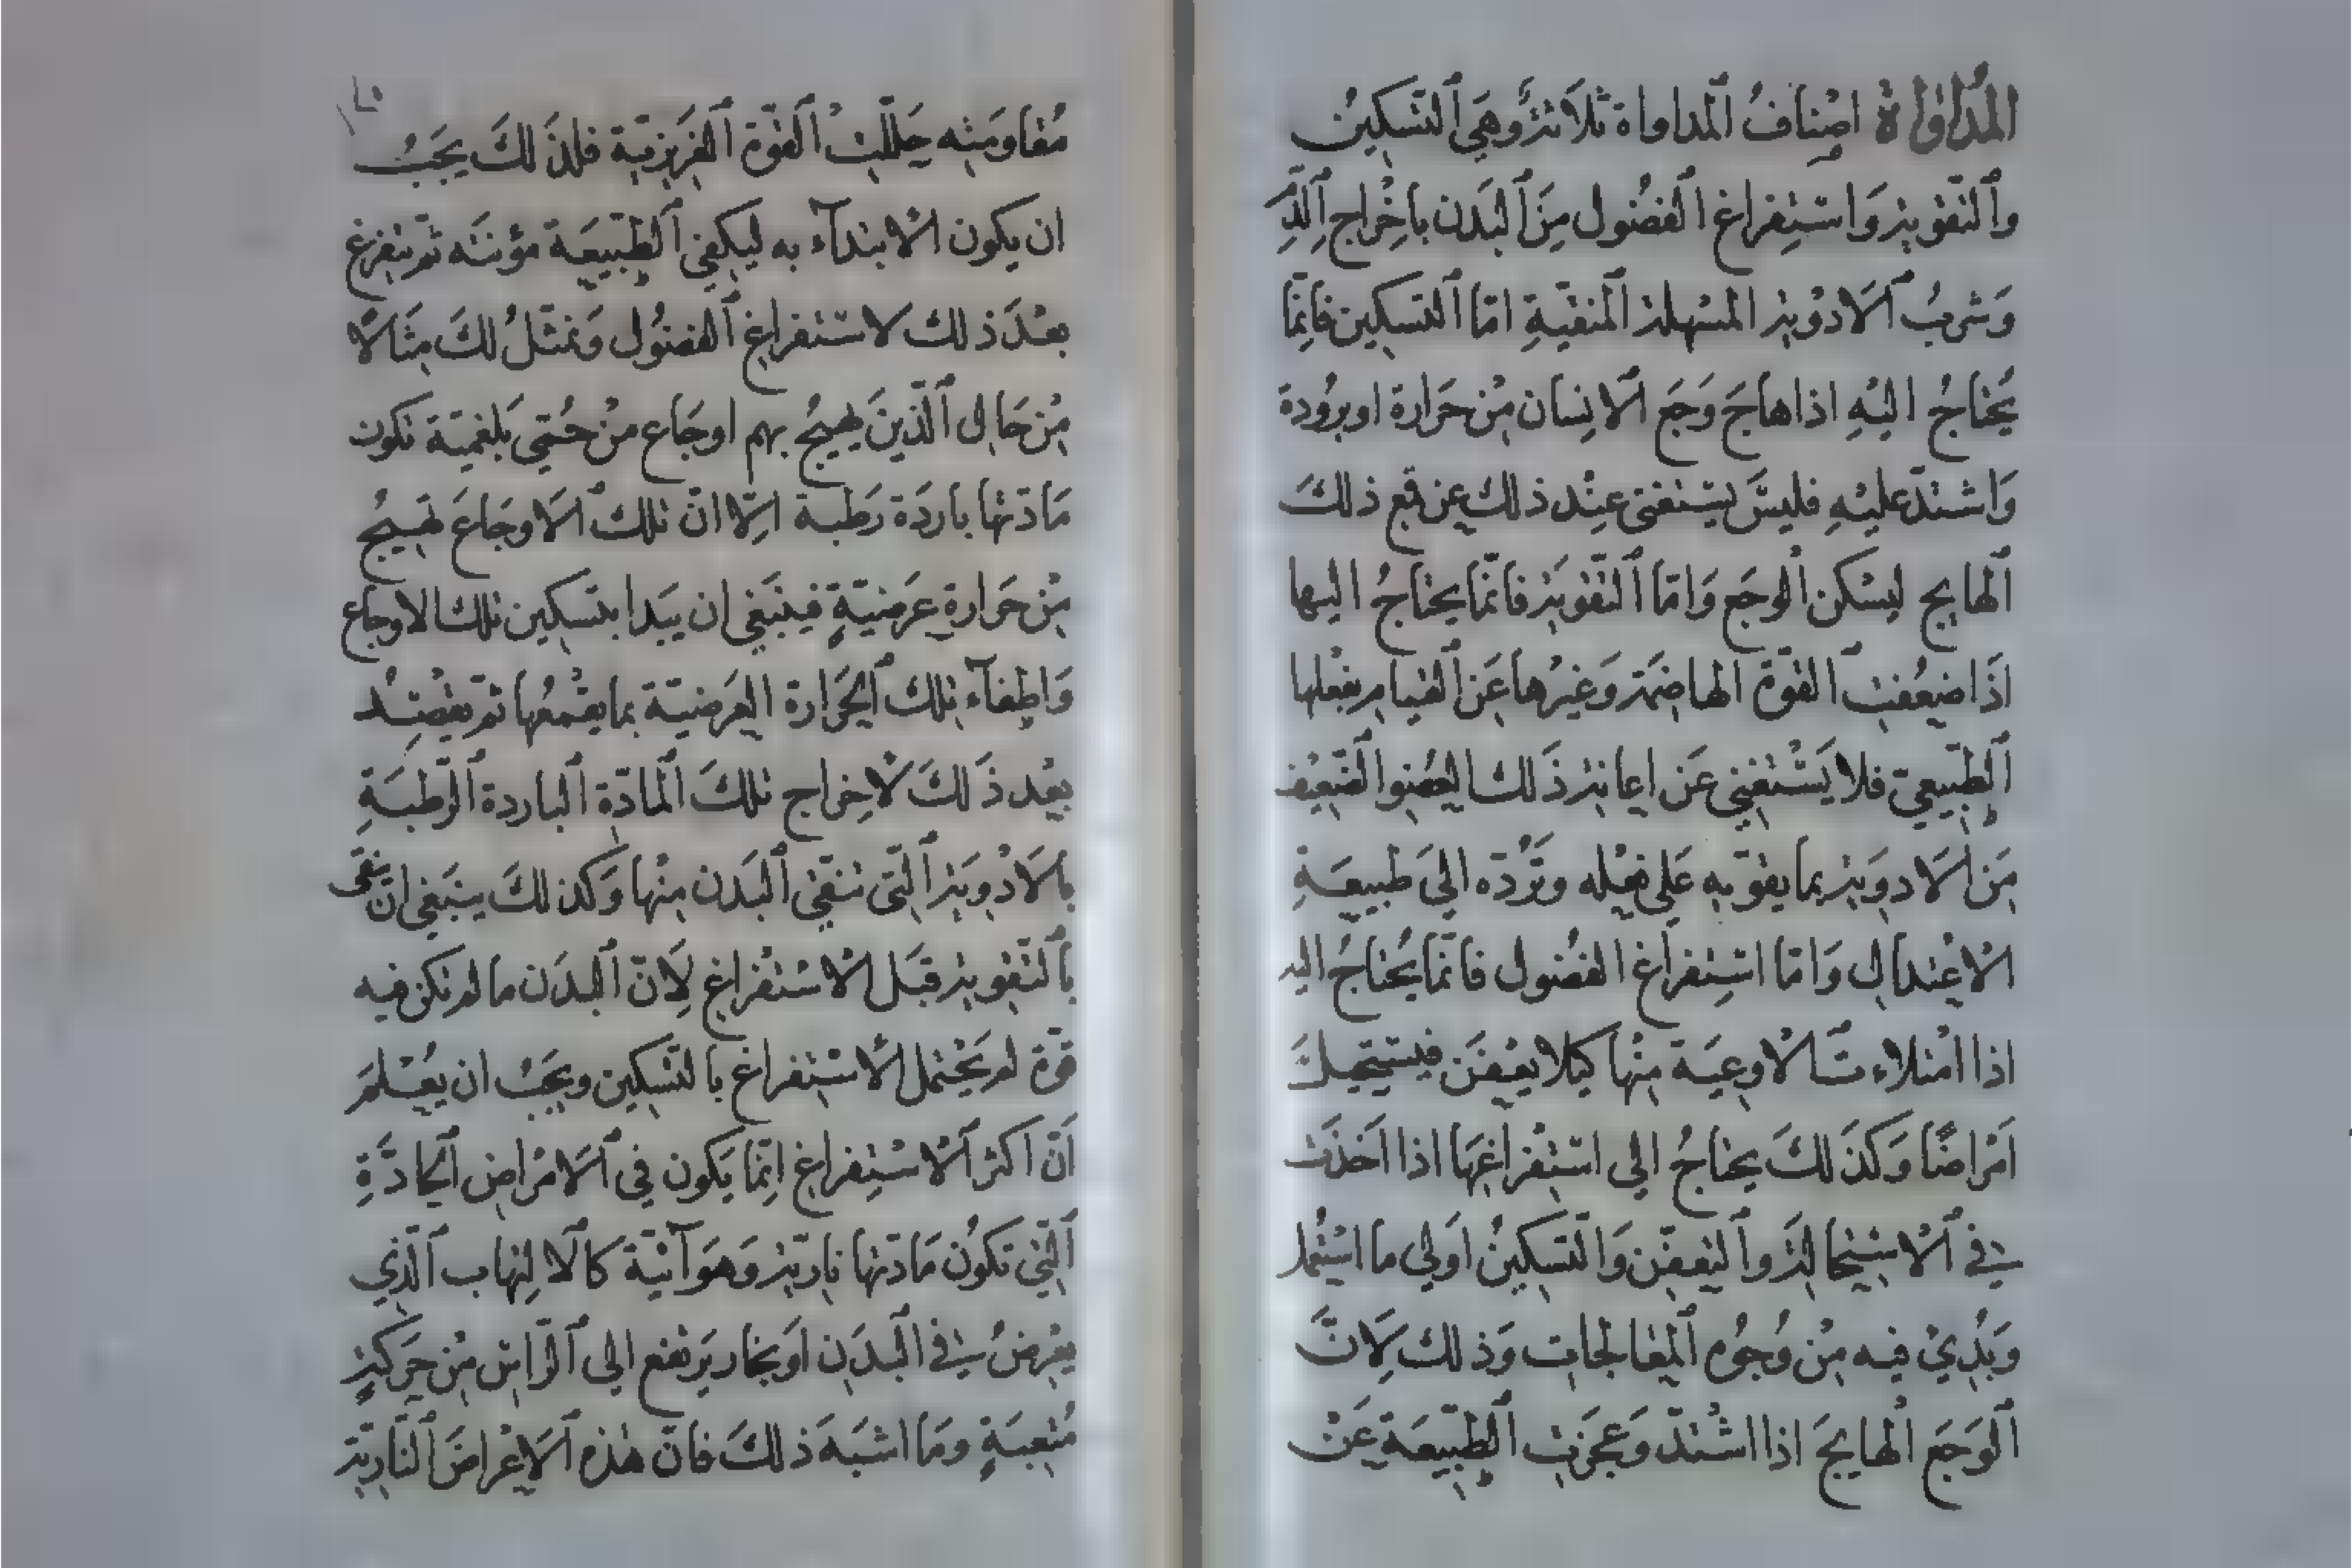 المداواة اصناف المداواة ثلاثة وهي التسكين
والتقوية واستفراغ الفضول من البدن باخراج الدم
وشرب الادوية المسهلة المنقية امّا التسكين فانّما
يحتاج اليه اذا هاج وجع الانسان من حرارة او برودة
واشتدّ عليه فليس يستغنى عند ذلك عن قمع ذلك
الهايج ليسكن الوجع وامّا التقوية فانّما يحتاج اليها
اذا ضعفت القوّة الهاضمة وغيرها عن القيام بفعلها
الطبيعي فلا يستغنى عن اعانة ذلك العضوا الضعيف
من الادوية بما يقوّيه على فعله وتردّه الى طبيعة
الاعتدال وامّا استفراغ الفضول فانّما يحتاج اليه
اذا امتلاءت الاوعية منها كيلا يعفن فيستحيل
امراضًا وكذلك يحتاج الى استفراغها اذا اخذت
في الاستحالة والتعفّن والتسكين اولى ما استعمل
وبُدِئ فيه من وجوه المعالجات وذلك لانّ
الوجع الهايج اذا اشتدّ وعجزت الطبيعة عن
مقاومته حللت القوّة الغريزيّة فلذلك يجب
ان يكون الابتدآء به ليكفي الطبيعة مؤنته ثم يتفرغ
بعد ذلك لاستفراغ الفضول ونمثّل لك مثالاً
من حال الّذين يهيج بهم اوجاع من حُمّى بلغميّة تكون
مادّتها باردة رطبة الّا انّ تلك الاوجاع تهيج
من حرارة عرضيّة فينبغى ان يبدا بتسكين تلك الاوجاع
واطفآء تلك الحرارة العرضيّة بما يقمعها ثم يقصد
بعد ذلك لاخراج تلك المادّة الباردة الرّطبة
بالادوية الّتى تنقّي البدن منها وكذلك ينبغى ان
بالتقوية قبل الاستفراغ لانّ البدن ما لم تكن فيه
قوّة لم يحتمل الاستفراغ بالتسكين ويجب ان يعلم
انّ اكثر الاستفراغ انّما يكون في الامراض الحادّة
الّتي تكون مادّتها ناريّة وهوآئيّة كالالتهاب الّذي
يعرض في البدن او بخار يرتفع الى الرّاس من حركة
متعبة وما اشبه ذلك فانّ هذه الاعراض الناريّة